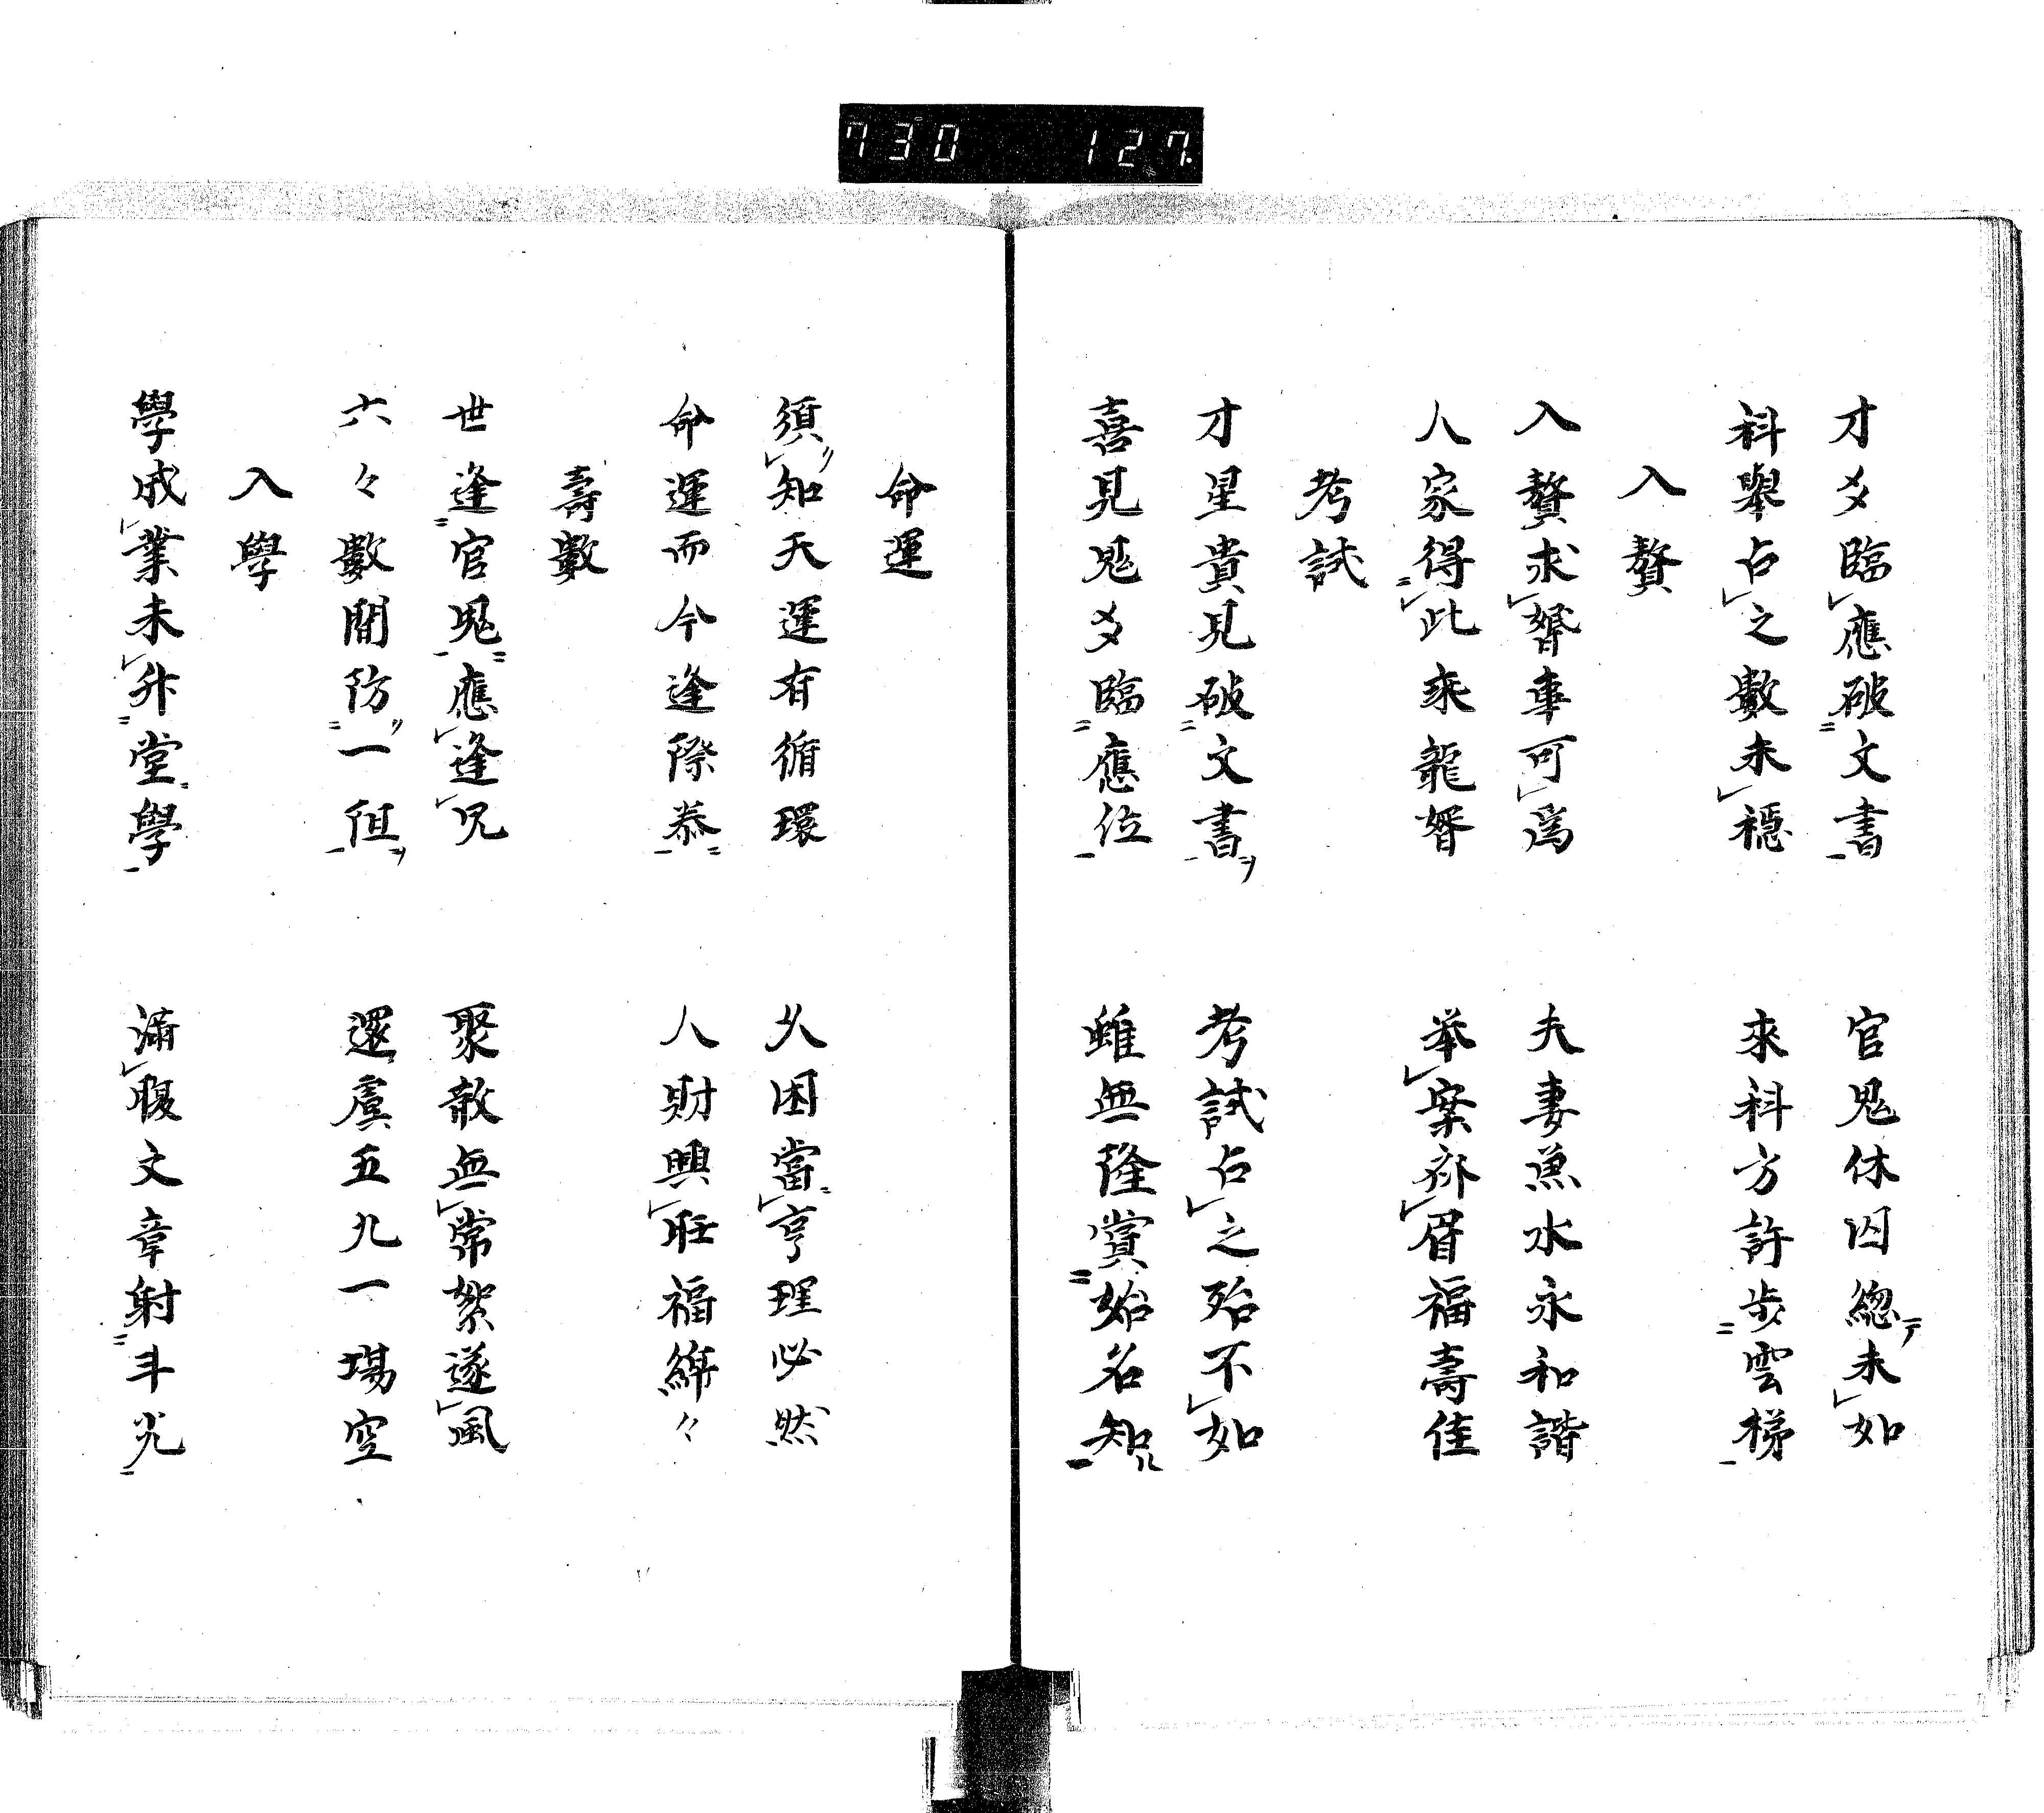 730 127
才爻臨應破文書 官鬼休囚總未如
科舉占之數未穩 來科方許步雲梯
入贅
入贅求婿事可為 夫妻魚水永和諧
人家得此乘龍婿 举案齐眉福壽佳
考試
才星貴見破文書 考試占之殆不如
喜見鬼爻臨應位 雖無隆賞始名知
命運
須知天運有循環 久困當亨理必然
命運而今逢際泰 人財興旺福綿々
壽數
世逢官鬼應逢咒 聚散無常絮逐風
六々數閒防一徂 還虞五九一場空
入學
學成業未升堂學 滿腹文章射斗光